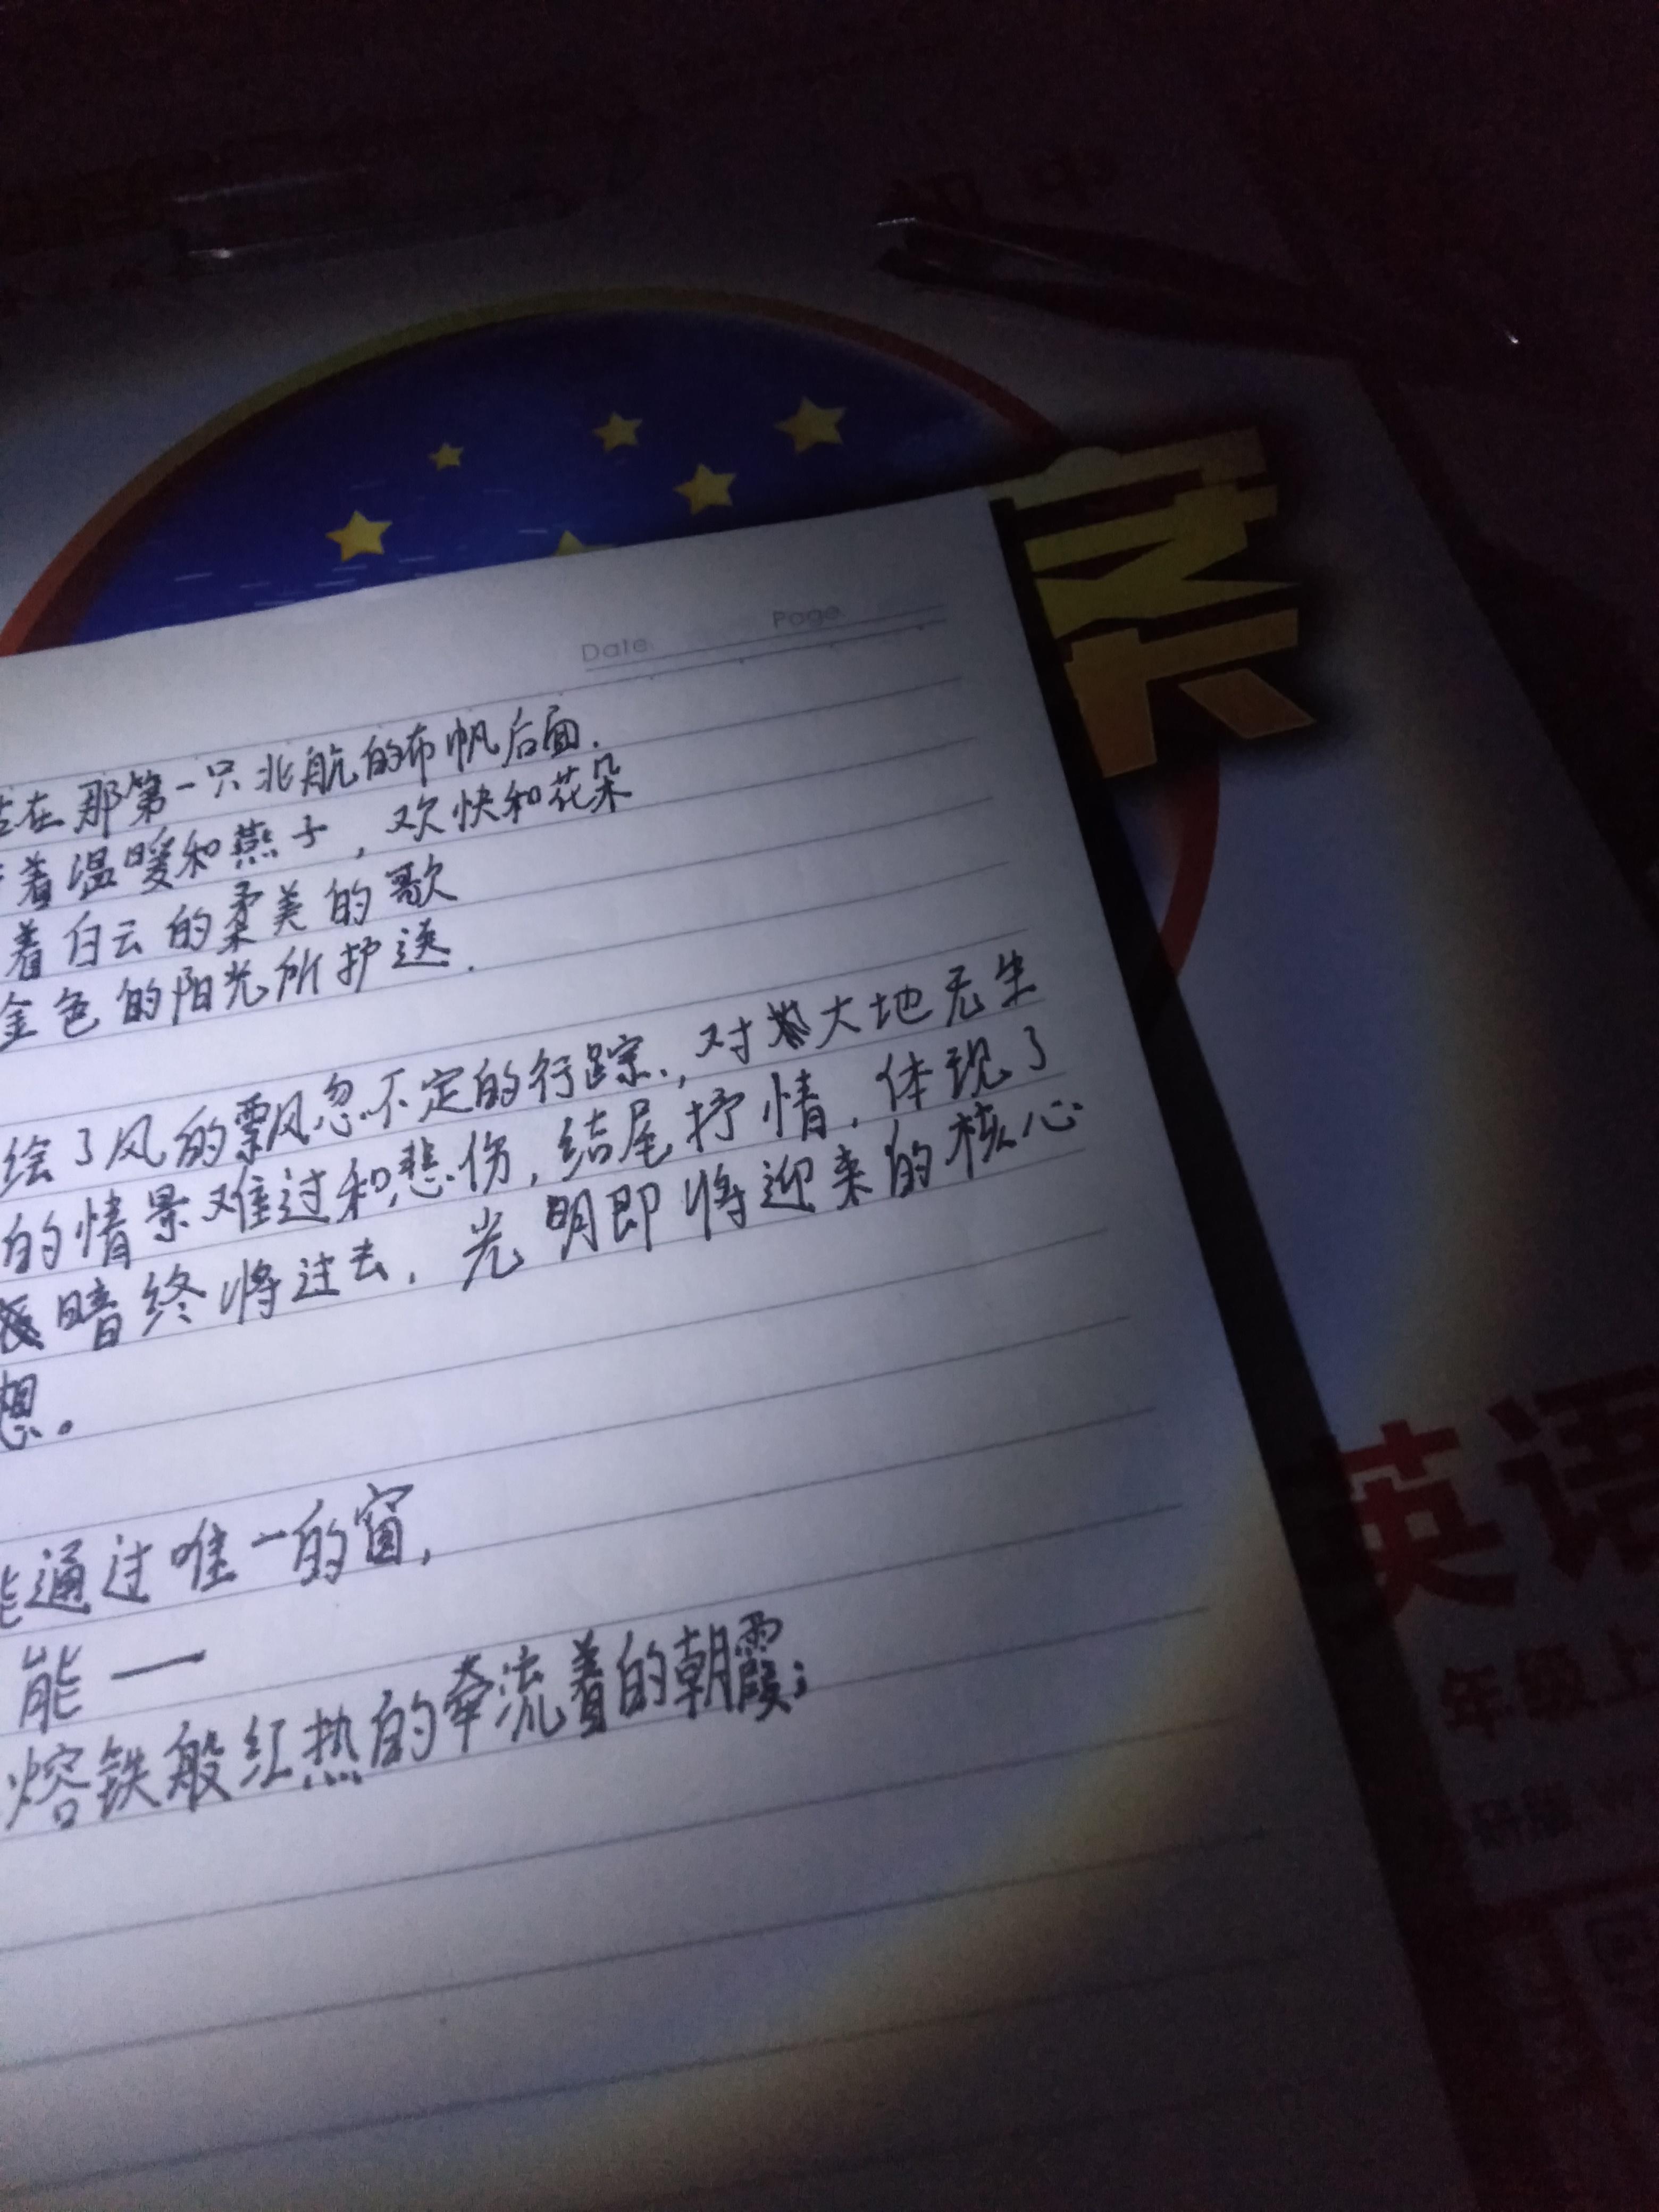 Date Page
在那第一只北航的布帆后面.
着温暖和燕子，欢快和花朵
着白云的柔美的歌
金色的阳光所护送.
绘了风的飘忽不定的行踪.，对大地无生
的情景难过和悲伤，结尾抒情，体现了
暗终将过去，光明即将迎来的核心
想。
能通过唯一的窗，
能一
熔铁般红热的奔流着的朝霞；
英语
年级上
研版